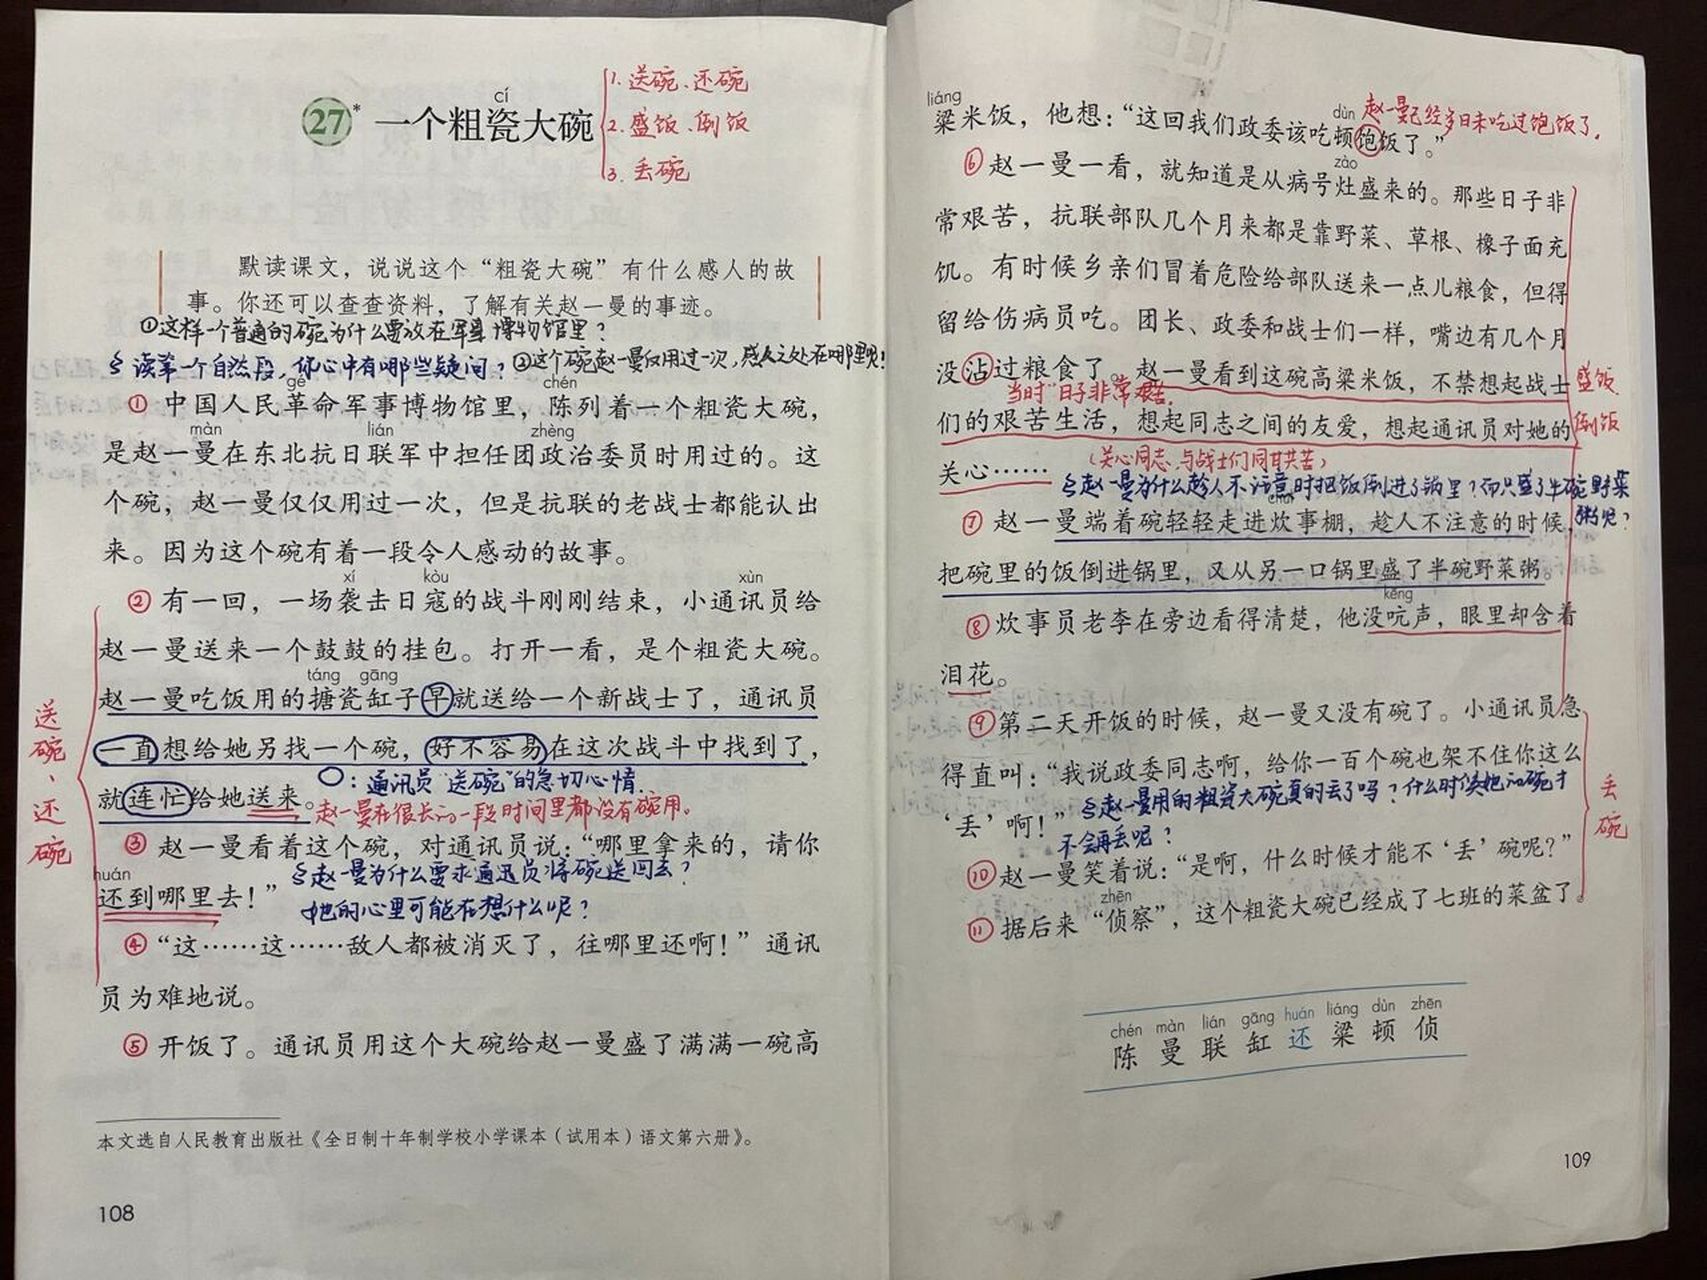 27* 一个粗瓷大碗
cí
1. 送碗、还碗
2. 盛饭、倒饭
3. 丢碗
默读课文，说说这个“粗瓷大碗”有什么感人的故
事。你还可以查查资料，了解有关赵一曼的事迹。
①这样一个普通的碗为什么要放在军事博物馆里？
读第一个自然段，你心中有哪些疑问？②这个碗赵一曼仅用过一次，感人之处在哪里呢！
gé chén
① 中国人民革命军事博物馆里，陈列着一个粗瓷大碗，
màn lián zhèng
是赵一曼在东北抗日联军中担任团政治委员时用过的。这
个碗，赵一曼仅仅用过一次，但是抗联的老战士都能认出
来。因为这个碗有着一段令人感动的故事。
xí kòu xùn
② 有一回，一场袭击日寇的战斗刚刚结束，小通讯员给
赵一曼送来一个鼓鼓的挂包。打开一看，是个粗瓷大碗。
táng gāng
赵一曼吃饭用的搪瓷缸子早就送给一个新战士了，通讯员
一直想给她另找一个碗，好不容易在这次战斗中找到了，
○：通讯员“送碗”的急切心情.
就连忙给她送来。
赵一曼在很长的一段时间里都没有碗用。
送碗、还碗
③ 赵一曼看着这个碗，对通讯员说：“哪里拿来的，请你
huán
还到哪里去！”
赵一曼为什么要求通迅员将碗送回去？
她的心里可能在想什么呢？
④ “这……这……敌人都被消灭了，往哪里还啊！”通讯
员为难地说。
⑤ 开饭了。通讯员用这个大碗给赵一曼盛了满满一碗高
本文选自人民教育出版社《全日制十年制学校小学课本（试用本）语文第六册》。
108
liáng dùn
梁米饭，他想：“这回我们政委该吃顿饱饭了。”
赵一曼已经多日未吃过饱饭了.
zào
⑥ 赵一曼一看，就知道是从病号灶盛来的。那些日子非
常艰苦，抗联部队几个月来都是靠野菜、草根、橡子面充
饥。有时候乡亲们冒着危险给部队送来一点儿粮食，但得
留给伤病员吃。团长、政委和战士们一样，嘴边有几个月
没沾过粮食了。赵一曼看到这碗高梁米饭，不禁想起战士
当时“日子非常艰苦.
们的艰苦生活，想起同志之间的友爱，想起通讯员对她的
盛饭
倒饭
关心……
（关心同志，与战士们同甘共苦）
赵一曼为什么趁人不注意时把饭倒进了锅里？而只盛了半碗野菜
粥呢？
chèn
⑦ 赵一曼端着碗轻轻走进炊事棚，趁人不注意的时候，
把碗里的饭倒进锅里，又从另一口锅里盛了半碗野菜粥。
kēng
⑧ 炊事员老李在旁边看得清楚，他没吭声，眼里却含着
泪花。
⑨ 第二天开饭的时候，赵一曼又没有碗了。小通讯员急
得直叫：“我说政委同志啊，给你一百个碗也架不住你这么
‘丢’啊！”
赵一曼用的粗瓷大碗真的丢了吗？什么时候她的碗才
不会再丢呢？
丢碗
⑩ 赵一曼笑着说：“是啊，什么时候才能不‘丢’碗呢？”
zhēn
⑪ 据后来“侦察”，这个粗瓷大碗已经成了七班的菜盆了。
chén màn lián gāng huán liáng dùn zhēn
陈 曼 联 缸 还 梁 顿 侦
109